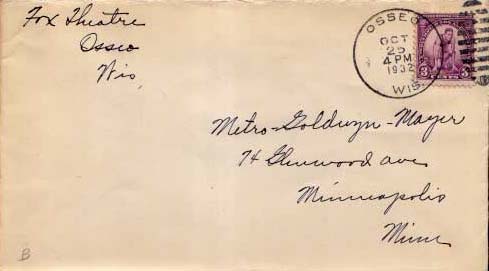 Fox Theatre
Osseo
Wis
OSSEO
OCT
25
4 PM
1932
WIS.
3 3
Metro-Goldwyn-Mayer
74 Glenwood ave
Minneapolis
Minn
B